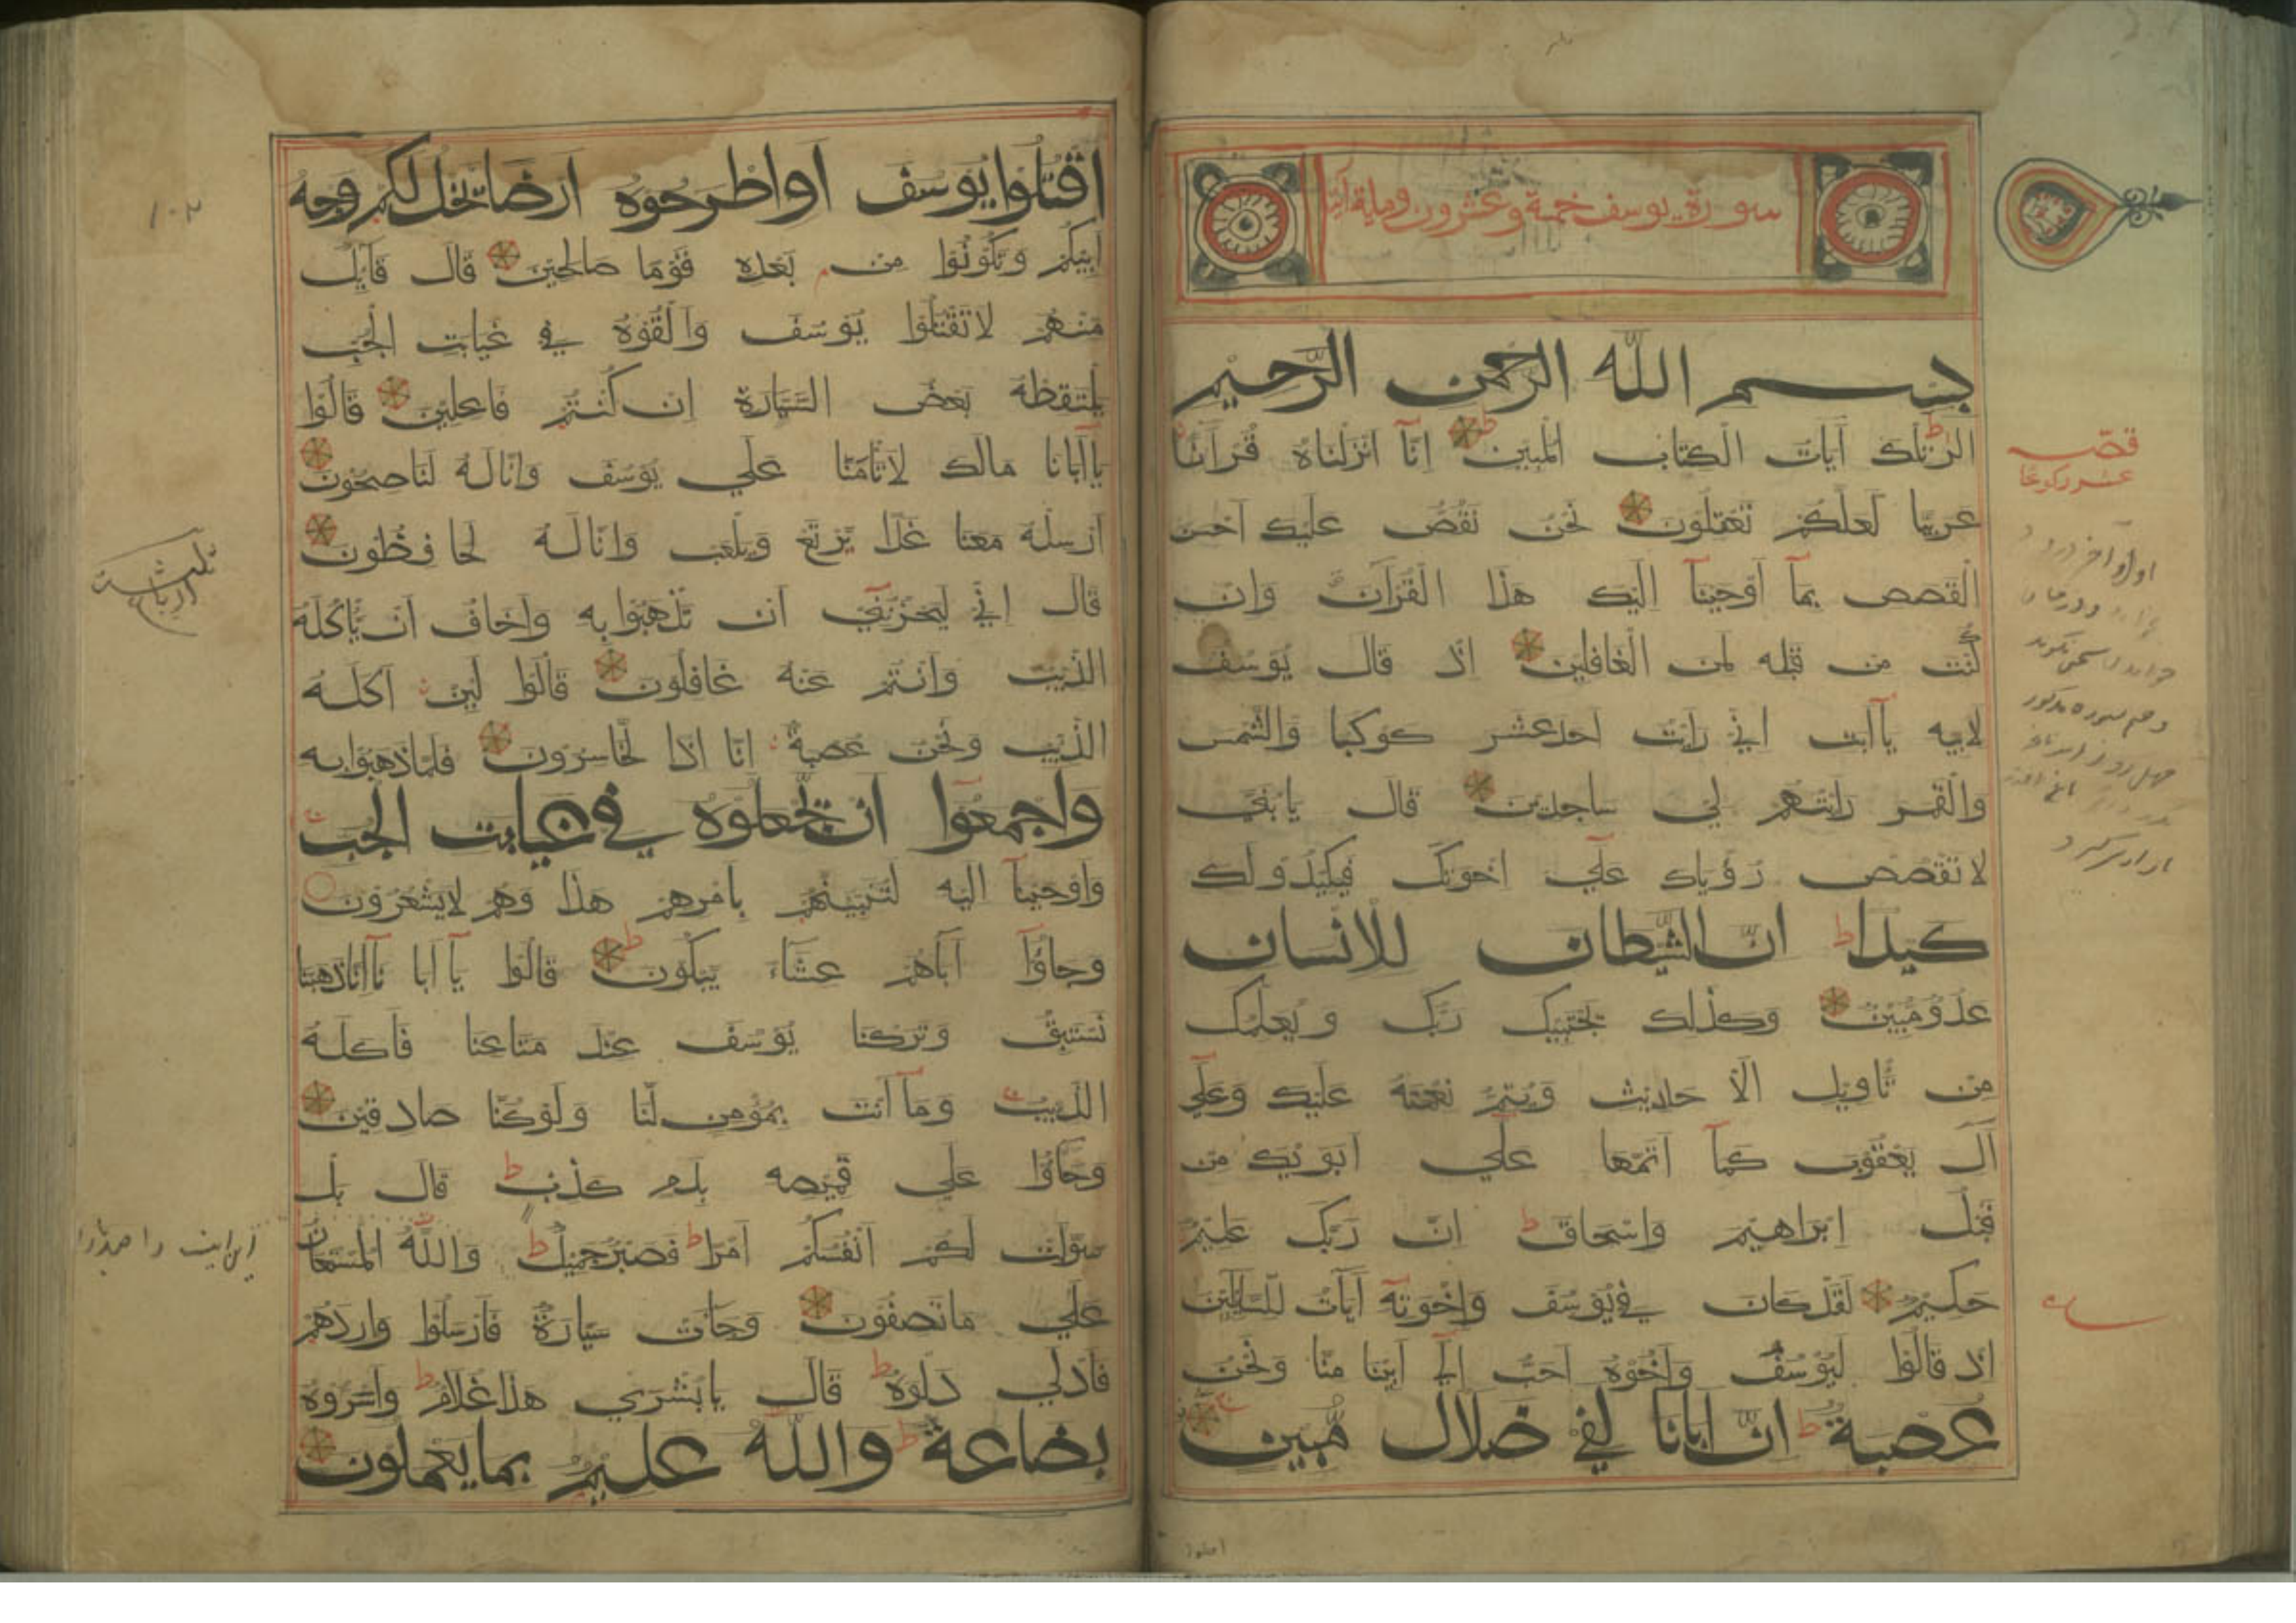 سورة يوسف خمسة وعشرون وماية آيتا
بسم الله الرحمن الرحيم
الر تلك آيات الكتاب المبين انآ انزلناه قرآنا
عربيا لعلكم تعقلون نحن نقص عليك احسن
القصص بمآ اوحينآ اليك هذا القرآن وان
كنت من قبله لمن الغافلين اذ قال يوسف
لابيه يآابت اني رايت احد عشر كوكبا والشمس
والقمر رايتهم لي ساجدين قال يابني
لا تقصص رؤياك علي اخوتك فيكيدو لك
كيدا ط ان الشيطان للانسان
عدو مبين وكذلك يجتبيك ربك ويعلمك
من تاويل الا حاديث ويتم نعمته عليك وعلي
آل يعقوب كمآ اتمها علي ابويك من
قبل ابراهيم واسحاق ط ان ربك عليم
حكيم لقد كان في يوسف واخوته آيات للسايلين
اذ قالوا ليوسف واخوه احب الي ابينا منا ونحن
عصبة ط ان ابانا لفي ضلال مبين
قصب
عشر ركوعا
اقتلوا يوسف اواطرحوه ارضا يخل لكم وجه
ابيكم وتكونوا من بعده قوما صالحين قال قايل
منهم لا تقتلوا يوسف والقوه في غيابت الجب
يلتقطه بعض السيارة ان كنتم فاعلين قالوا
ياآبانا مالك لا تامنا علي يوسف وانا له لناصحون
ارسله معنا غدا يرتع ويلعب وانا له لحافظون
قال اني ليحزنني ان تذهبوا به واخاف ان ياكله
الذيب وانتم عنه غافلون قالوا لين اكله
الذيب ونحن عصبة انا اذا لخاسرون فلما ذهبوا به
واجمعوا ان يجعلوه في غيابت الجب
واوحينآ اليه لتنبينهم بامرهم هذا وهم لايشعرون
وجاؤآ اباهم عشاء يبكون ط قالوا يآابا نآانا ذهبنا
نستبق وتركنا يوسف عند متاعنا فاكله
الذيب ومآ انت بمؤمن لنا ولو كنا صادقين
وجاؤا علي قميصه بدم كذب ط قال بل
سولت لكم انفسكم امرا ط فصبر جميل ط والله المستعان
علي ماتصفون وجآت سيارة فارسلوا واردهم
فادلي دلوه ط قال يابشري هذا غلام ط واسروه
بضاعة ط والله عليم بما يعملون